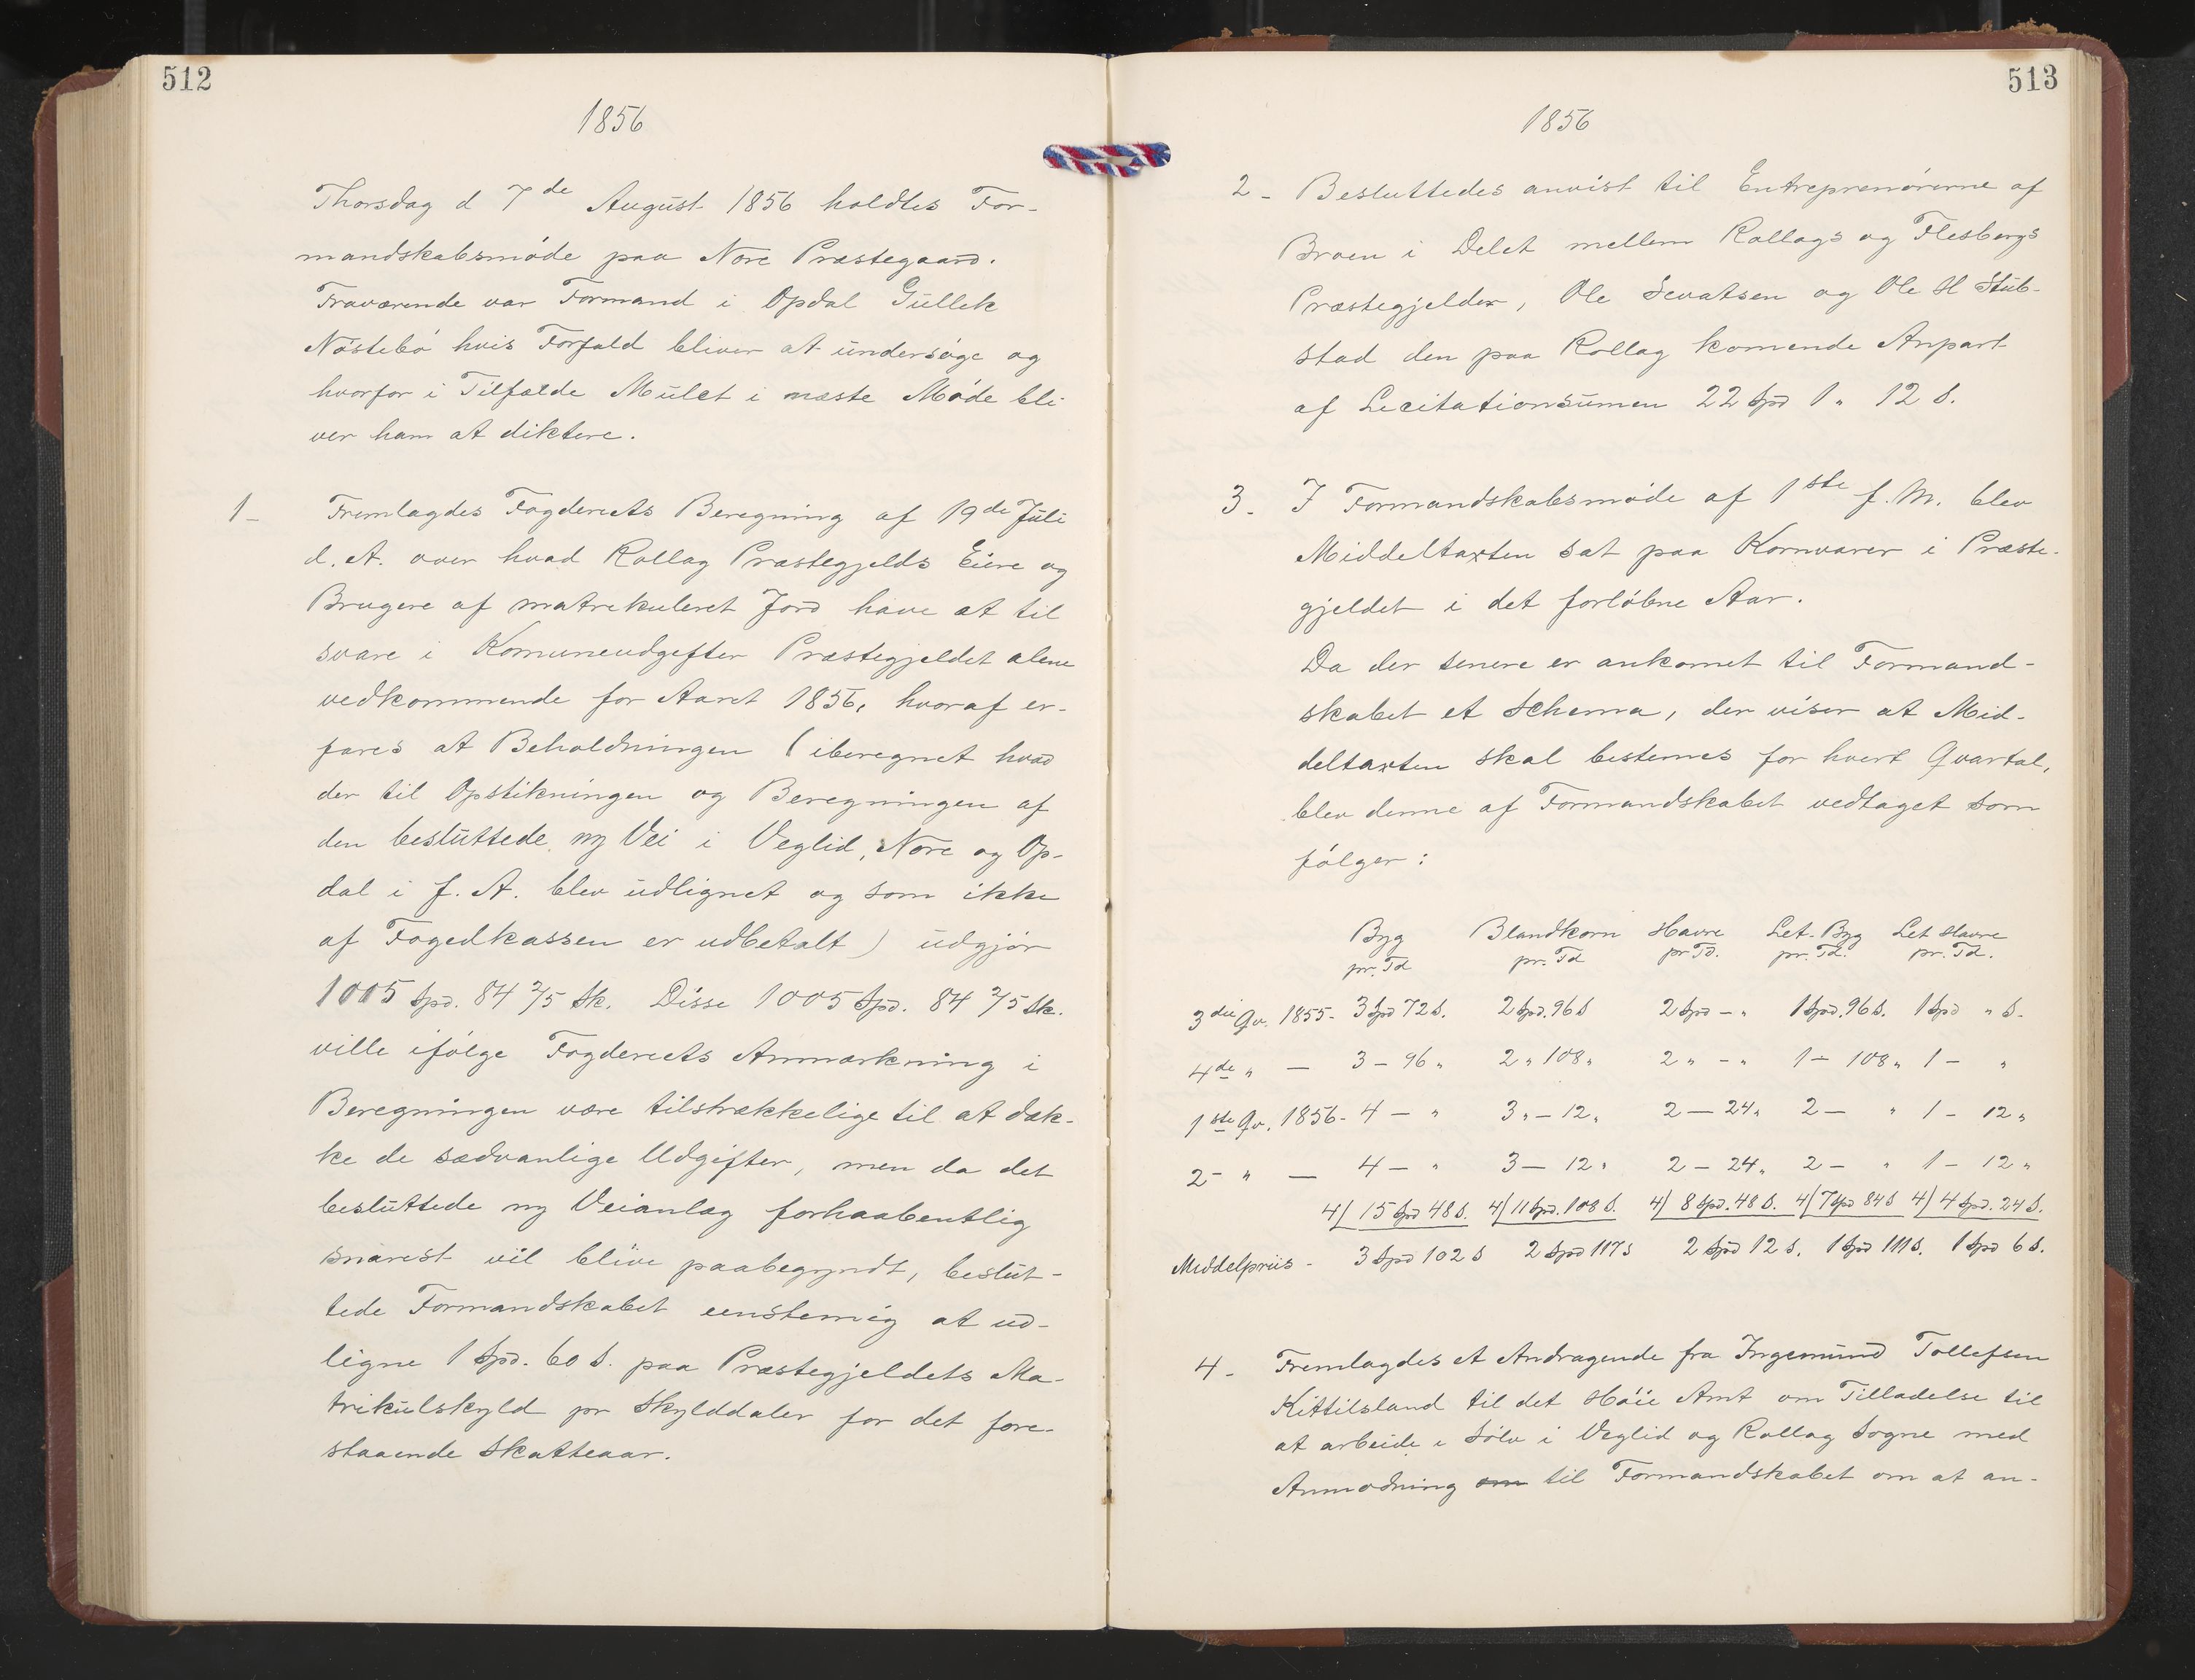 512
1856
Thorsdag d 7de August 1856 holdtes For-
mandskabsmöde paa Nore Præstegaard.
Fraværende var Formand i Opdal Gullek
Nöstebö hvis Forfald bliver at undersöge og
hvorfor i Tilfælde Mulct i næste Möde bli
ver ham at diktere.
1- Fremlagdes Fogderiets Beregning af 19de Juli
d. A. over hvad Rollag Præstegjelds Eiere og
Brugere af matrekuleret Jord have at til
svare i Komuneudgifter Præstegjeldet alene
vedkommende for Aaret 1856, hvoraf er-
fares at Beholdningen (iberegnet hvad
der til Opstikningen og Beregningen af
den besluttede ny Vei i Veglid, Nore og Op-
dal i f. A. blev udlignet og som ikke
af Fogedkassen er udbetalt) udgjör
1005 Spd. 84 2/5 Sk. Disse 1005 Spd. 84 2/5 Sk.
ville ifölge Fogderiets Anmærkning i
Beregningen være tilstrækkelige til at dæk-
ke de sædvanlige Udgifter, men da det
besluttede ny Veianlæg forhaabentlig
snarest vil blive paabegyndt, beslut-
tede Formandskabet eenstemig at ud-
ligne 1 Spd. 60 S. paa Præstegjeldets Ma-
trikulskyld pr Skylddaler for det fore-
staaende Skatteaar.
513
1856
2- Besluttedes anvist til Entreprenörerne af
Broen i Delet mellem Rollags og Flesbergs
Præstegjelder, Ole Sevatsen og Ole H Stub-
stad den paa Rollag komende Anpart
af Licitationsumen 22 Spd 1 " 12 S.
3- I Formandskabsmöde af 1ste f. M. blev
Middeltaxten sat paa Kornvarer i Præste-
gjeldet i det forlöbne Aar.
Da der senere er ankomet til Formand-
skabet et Schema, der viser at Mid-
deltaxten skal bestemes for hvert Qvartal,
blev denne af Formandskabet vedtaget som
fölger:
Byg Blandkorn Havre Let-Byg Let Havre
pr. Td pr. Td pr Td. pr. Td. pr. Td.
3die Qv. 1855- 3 Spd 72 S. 2 Spd. 96 S 2 Spd - " 1 Spd. 96 S. 1 Spd " S.
4de " — 3 - 96 " 2 " 108 " 2 " - " 1 - 108 " 1 - "
1ste Qv. 1856- 4 — " 3 " - 12 " 2 — 24 " 2 — " 1 - 12 "
2- " — 4 — " 3 — 12 " 2 - 24 " 2 - " 1 - 12 "
4/ 15 Spd 48 S. 4/ 11 Spd. 108 S. 4/ 8 Spd. 48 S. 4/ 7 Spd 84 S 4/ 4 Spd. 24 S.
Middelpriis - 3 Spd 102 S 2 Spd 117 S 2 Spd 12 S. 1 Spd 111 S. 1 Spd 6 S.
4- Fremlagdes et Andragende fra Ingemund Tollefsen
Kittilsland til det Höie Amt om Tilladelse til
at arbeide i Sölv i Veglid og Rollag Sogne med
Anmodning om til Formandskabet om at an-